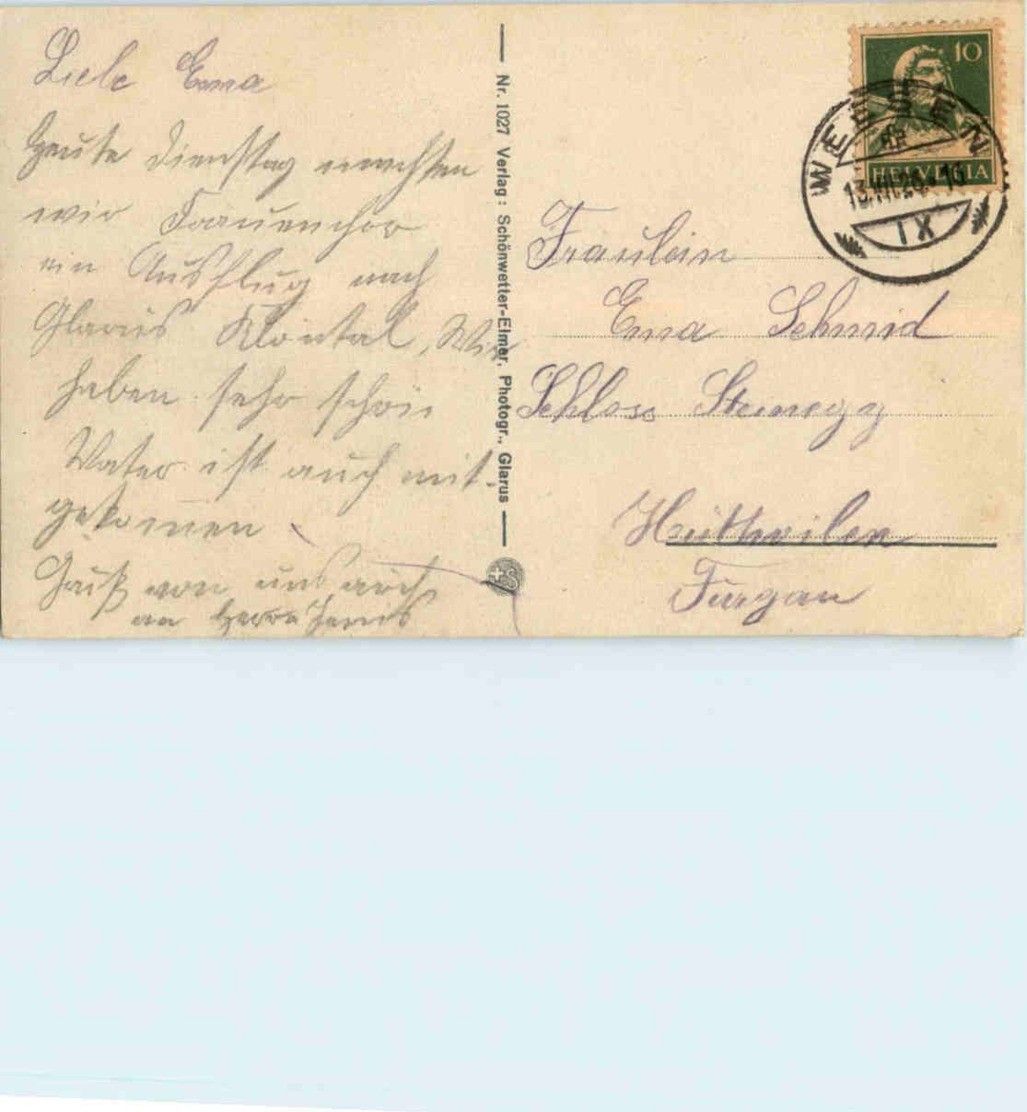 Liebe Ema
Heute Dienstag machten
wir Frauenchor
ein Ausflug nach
Glarus Klöntal, Wir
haben sehr schön
Vater ist auch mit-
gekomen
Gruß von uns auch
an Herrn
Nr. 1027 Verlag: Schönwetter-Elmer, Photogr., Glarus
10
HELVETIA
WEESEN
IX
Fräulein
Ema Schmid
Schloss Steinegg
Hüthwilen
Turgau